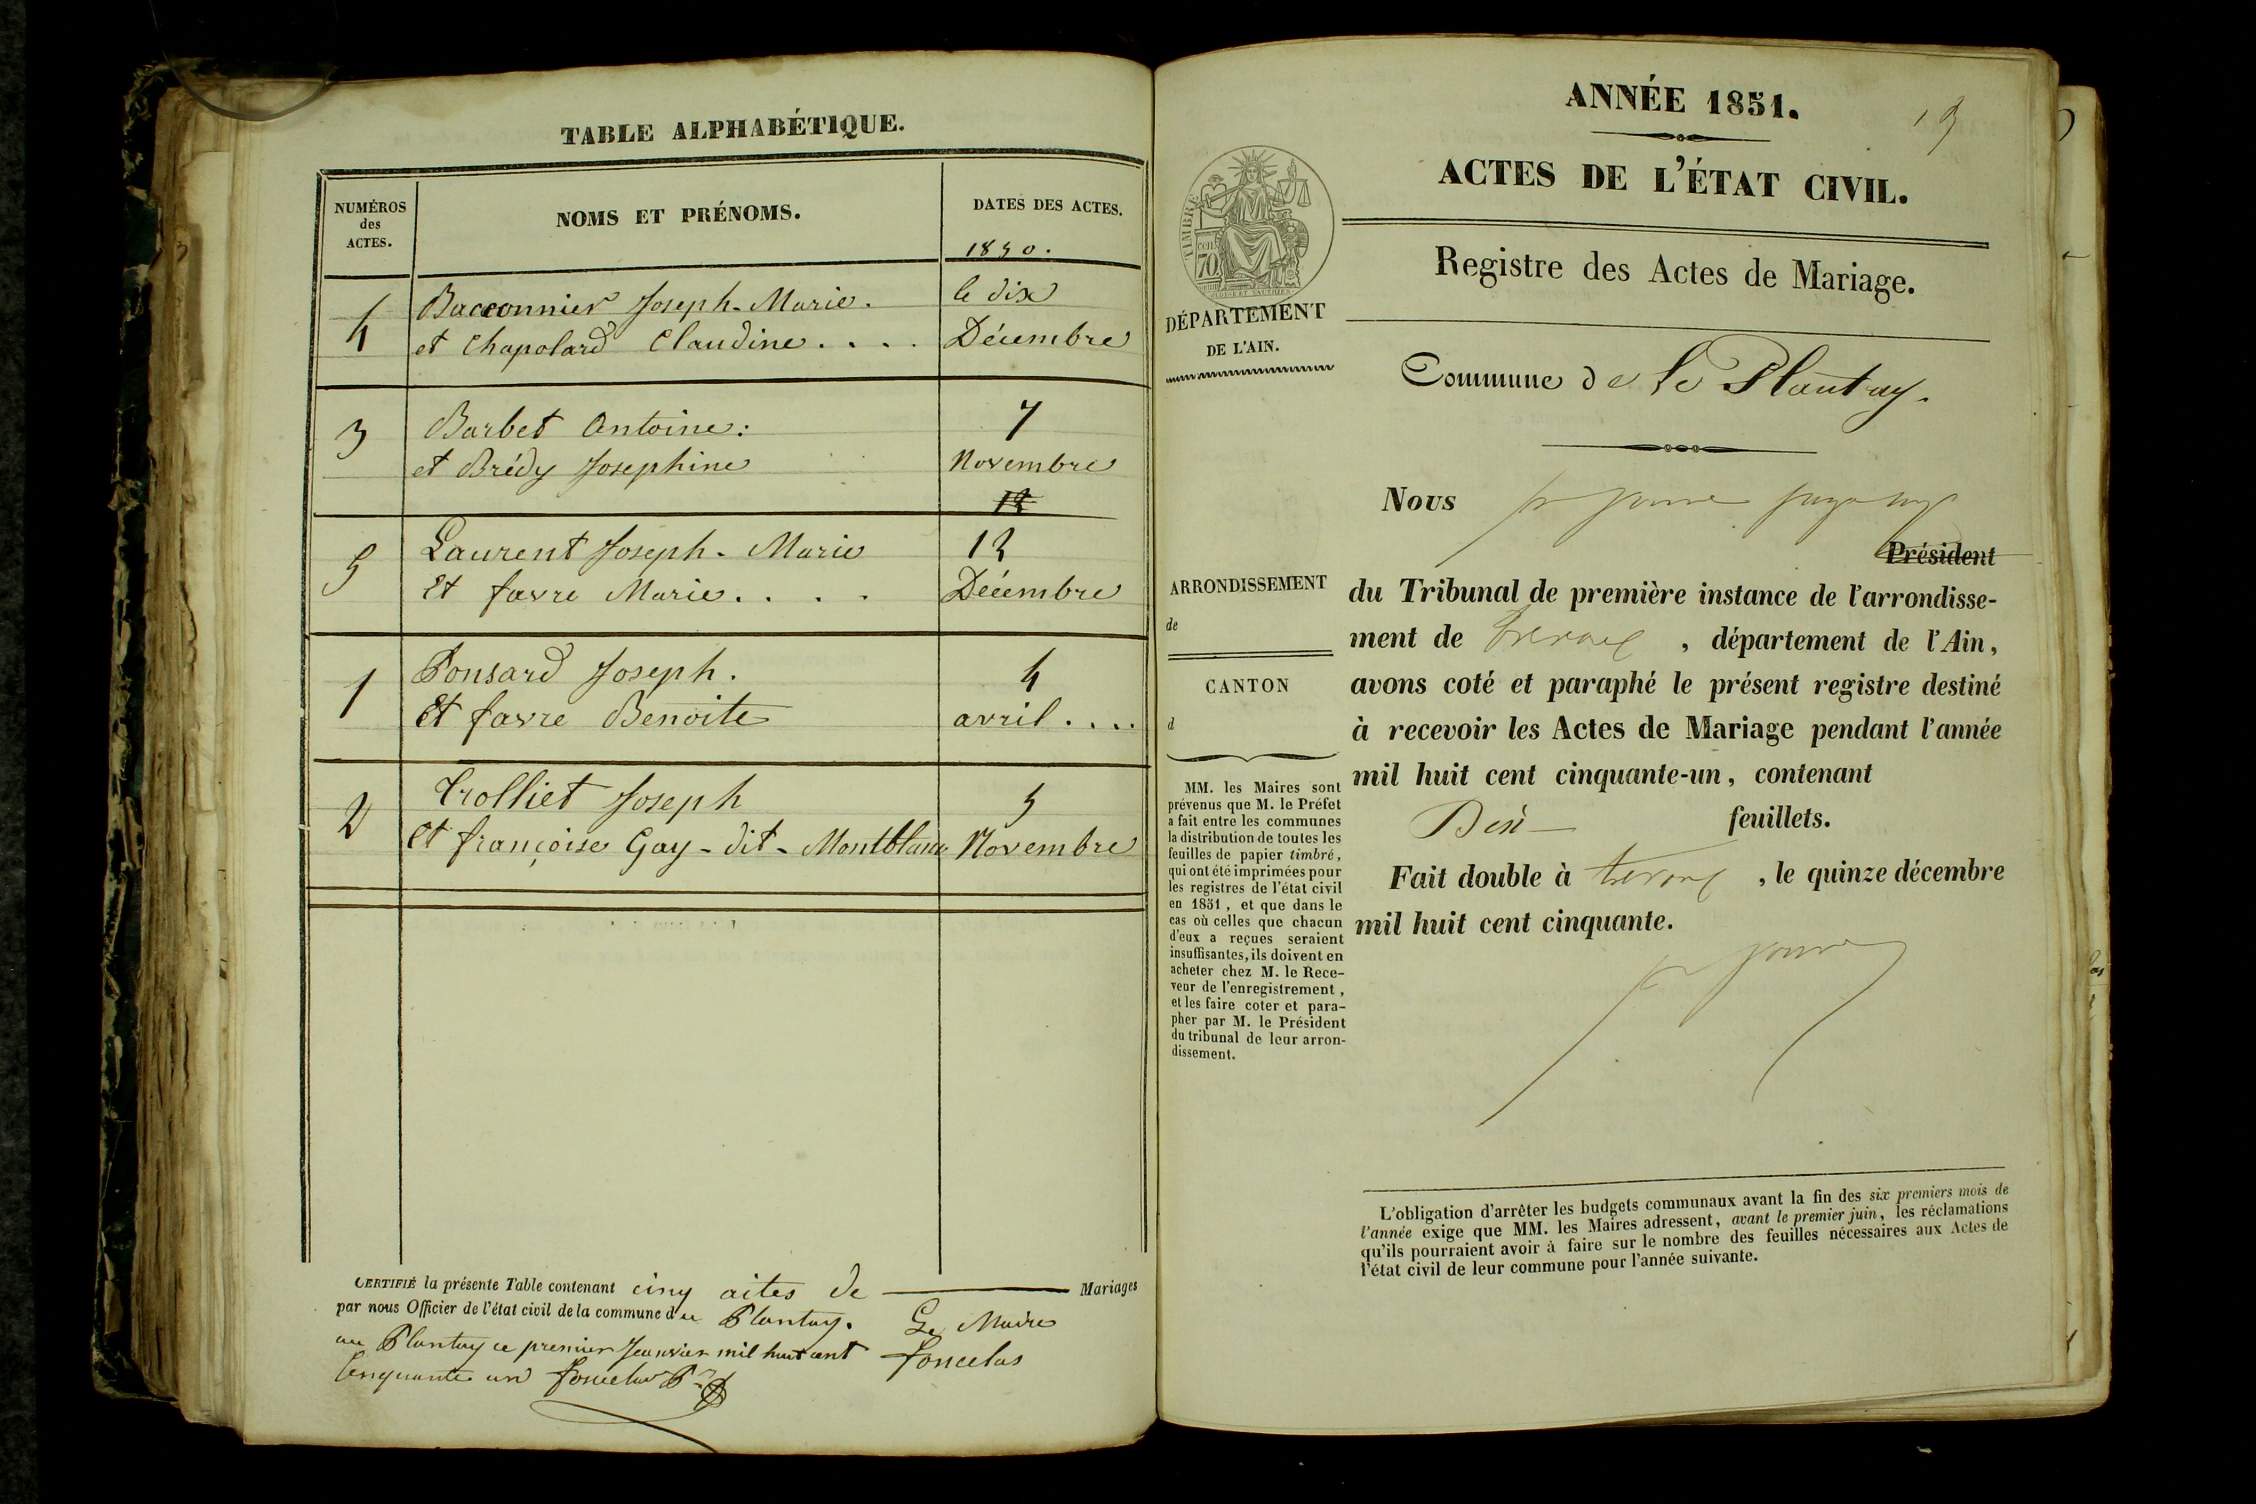 TABLE ALPHABÉTIQUE.
NUMÉROS
des
ACTES.
NOMS ET PRÉNOMS.
DATES DES ACTES.
1850.
4
Bacconnier Joseph-Marie.
le dix
et Chapolard Claudine....
Décembre
3
Barbet Antoine:
7
et Brédy Josephine
Novembre
12
5
Laurent Joseph-Marie
12
Et favre Marie....
Décembre
1
Ponsard Joseph.
4
Et favre Benoite
avril....
2
Trolliet Joseph
5
Et françoise Gay-dit-Montblanc
Novembre
CERTIFIÉ la présente Table contenant cinq actes de Mariages
par nous Officier de l'état civil de la commune du Plantay.
Le Maire
au Plantay ce premier Janvier mil huit cent
foncelas
Cinquante un
ANNÉE 1851.
ACTES DE L'ÉTAT CIVIL.
TIMBRE
70
Registre des Actes de Mariage.
DÉPARTEMENT
DE L'AIN.
Commune de le Plantay.
Nous
Président
ARRONDISSEMENT
de
CANTON
d
du Tribunal de première instance de l'arrondisse-
ment de Trevoux, département de l'Ain,
avons coté et paraphé le présent registre destiné
à recevoir les Actes de Mariage pendant l'année
mil huit cent cinquante-un, contenant
feuillets.
Fait double à trevoux, le quinze décembre
mil huit cent cinquante.
MM. les Maires sont
prévenus que M. le Préfet
a fait entre les communes
la distribution de toutes les
feuilles de papier timbré,
qui ont été imprimées pour
les registres de l'état civil
en 1851, et que dans le
cas où celles que chacun
d'eux a reçues seraient
insuffisantes, ils doivent en
acheter chez M. le Rece-
veur de l'enregistrement,
et les faire coter et para-
pher par M. le Président
du tribunal de leur arron-
dissement.
L'obligation d'arrêter les budgets communaux avant la fin des six premiers mois de
l'année exige que MM. les Maires adressent, avant le premier juin, les réclamations
qu'ils pourraient avoir à faire sur le nombre des feuilles nécessaires aux Actes de
l'état civil de leur commune pour l'année suivante.